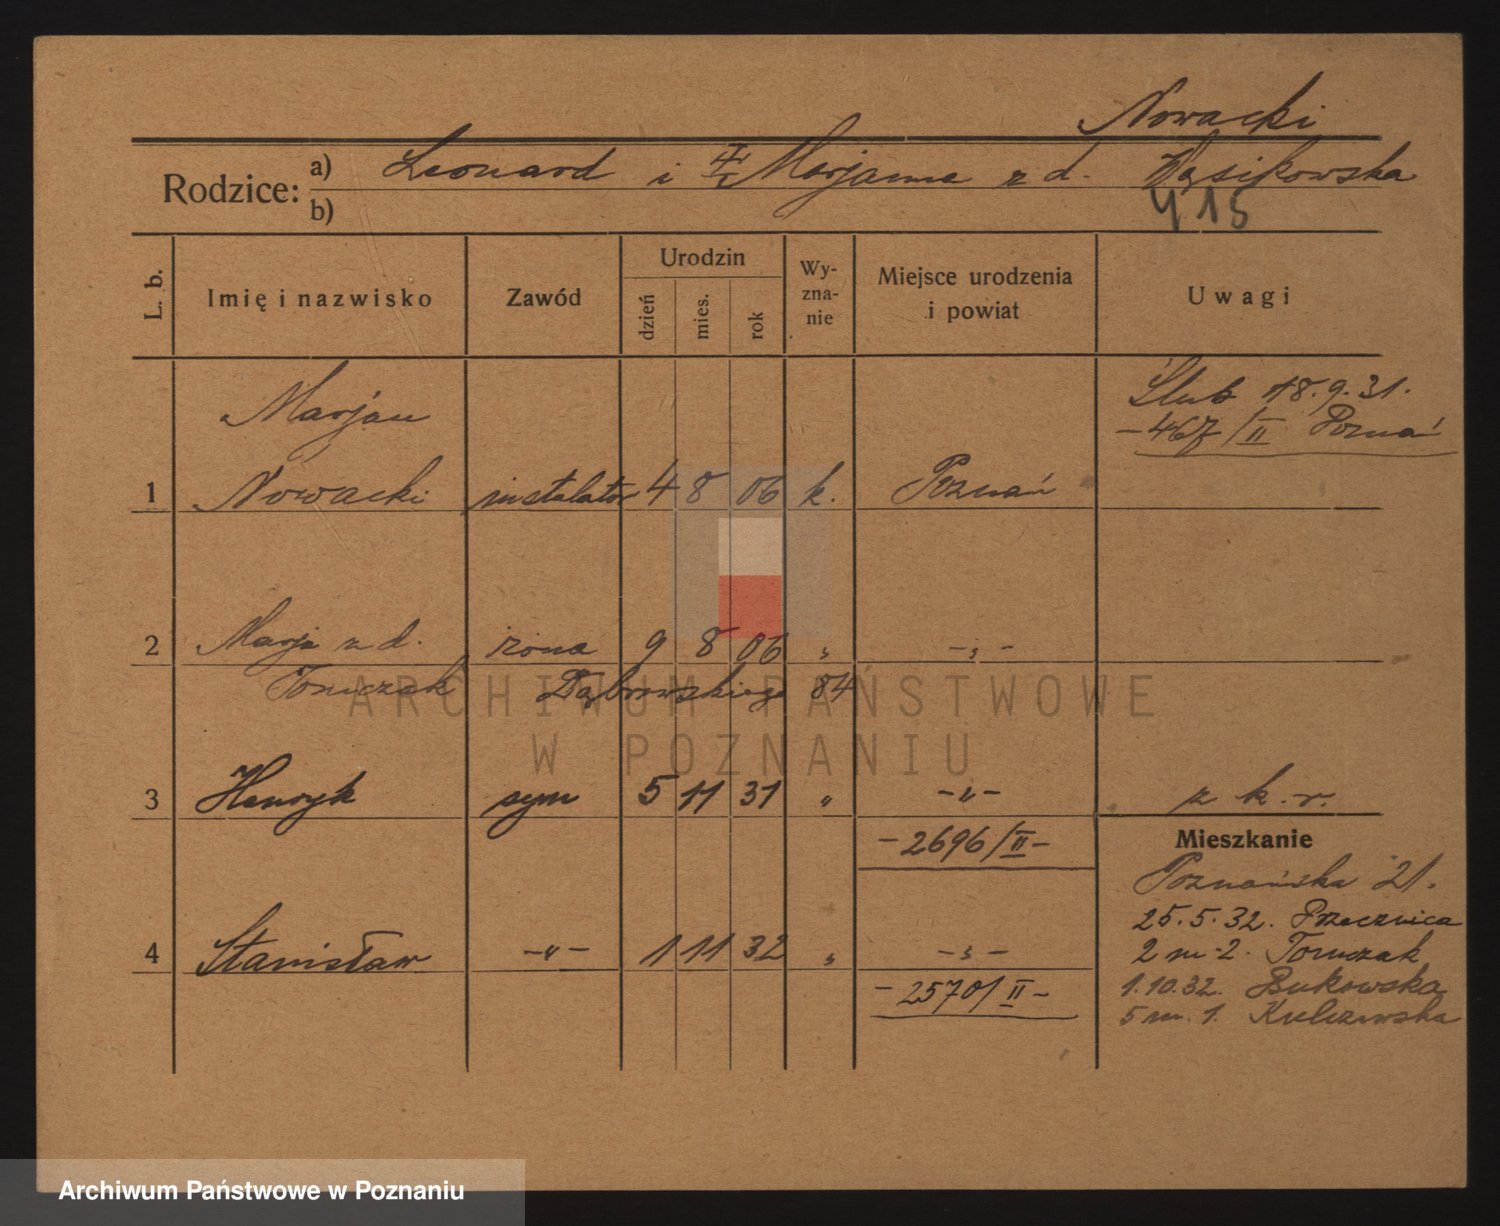 Nowacki
Rodzice: a) Leonard i Marjanna z d. Wąsikowska
b) 415
L. b. Imię i nazwisko Zawód Urodzin dzień mies. rok Wy-zna-nie Miejsce urodzenia i powiat Uwagi
Marjan Ślub 18.9.31.
-467/II Poznań
1 Nowacki instalator 4 8 06 k. Poznań
2 Marja z d. żona 9 8 06 " -"-
Tomczak Dąbrowskiego 84
3 Henryk syn 5 11 31 " -"- z k.r.
-2696/II- Mieszkanie
Poznańska 21.
25.5.32. Przecznica
4 Stanisław -"- 1 11 32 " -"- 2 m-2. Tomczak
-2570/II- 1.10.32. Bukowska
5 m. 1. Kulczewska
ARCHIWUM PAŃSTWOWE
W POZNANIU
Archiwum Państwowe w Poznaniu